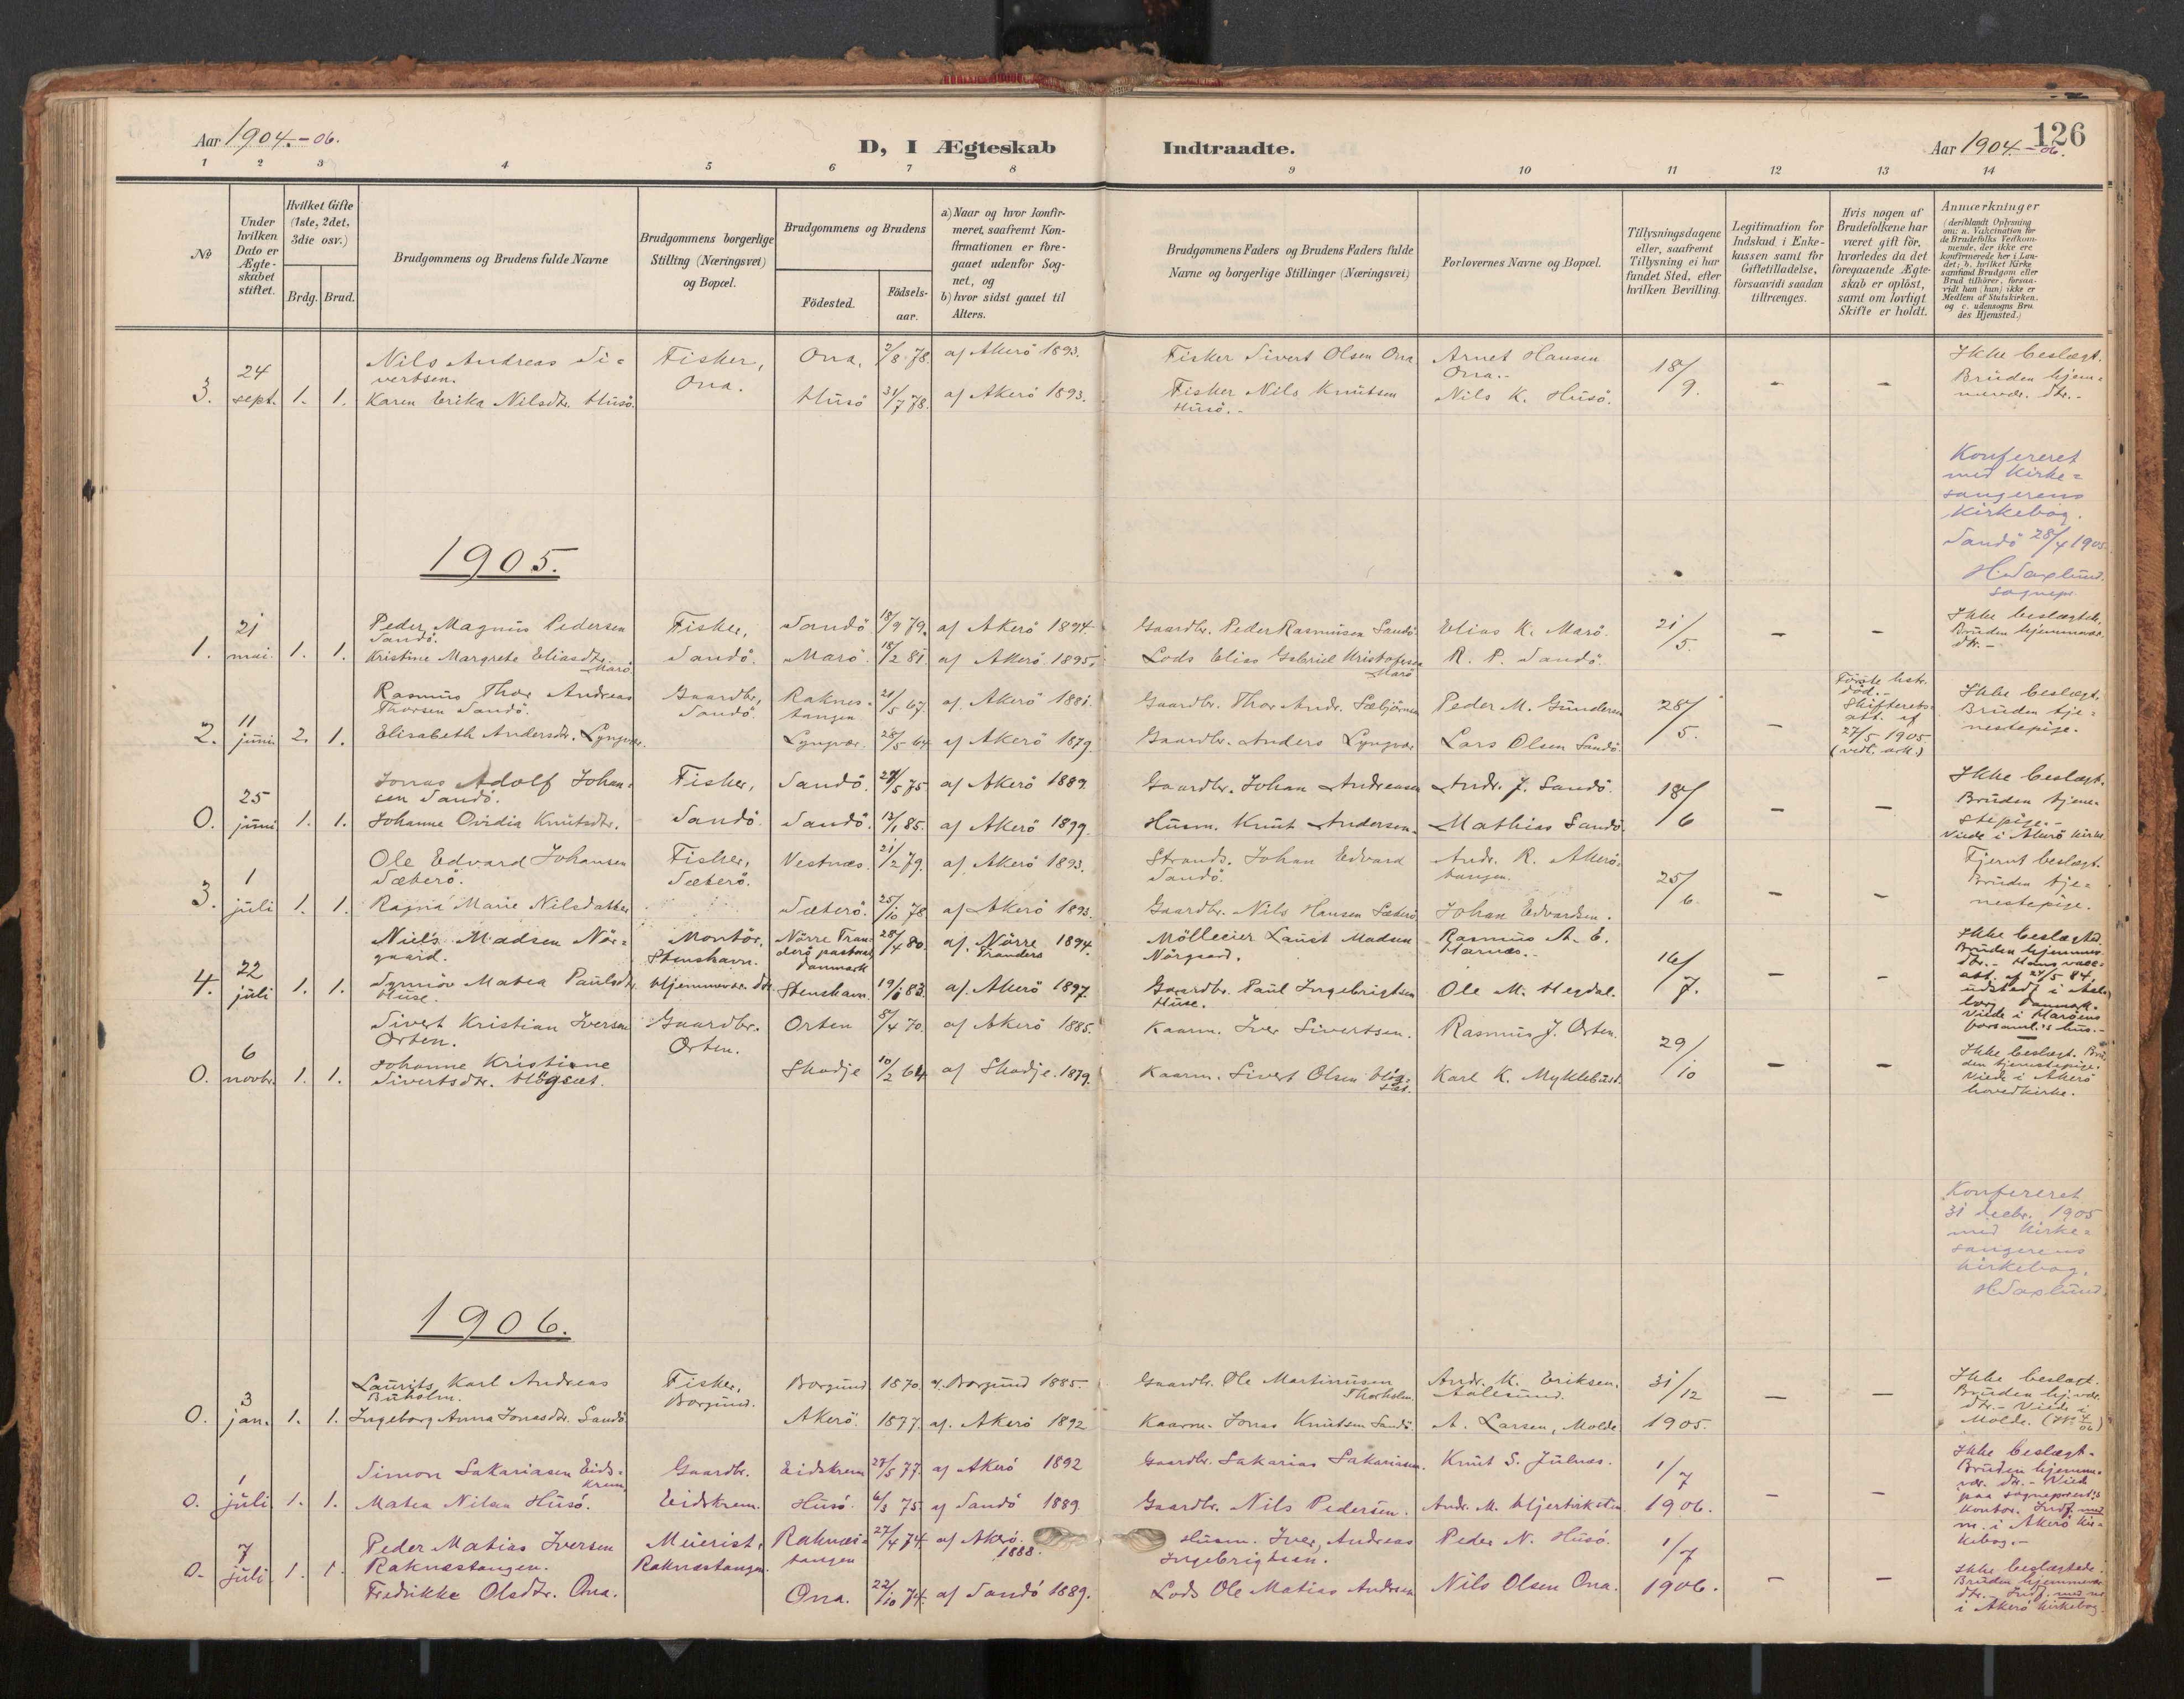 126
Aar 1904.-06.
D, I Ægteskab Indtraadte.
Aar 1904.-06.
1 2 3 4 5 6 7 8 9 10 11 12 13 14
No
Under hvilken Dato er Ægteskabet stiftet.
Hvilket Gifte (1ste, 2det, 3die osv.)
Brdg. Brud.
Brudgommens og Brudens fulde Navne
Brudgommens borgerlige Stilling (Næringsvei) og Bopæl.
Brudgommens og Brudens
Födested.
Födselsaar.
a) Naar og hvor konfirmeret, saafremt Konfirmationen er foregaaet udenfor Sognet, og
b) hvor sidst gaaet til Alters.
Brudgommens Faders og Brudens Faders fulde Navne og borgerlige Stillinger (Næringsvei)
Forlovernes Navne og Bopæl.
Tillysningsdagene eller, saafremt Tillysning ei har fundet Sted, efter hvilken Bevilling.
Legitimation for Indskud i Enkekassen samt for Giftetilladelse, forsaavidt saadan tiltrænges.
Hvis nogen af Brudefolkene har været gift för, hvorledes da det foregaaende Ægteskab er oplöst, samt om lovligt Skifte er holdt.
Anmærkninger
(deriblandt Oplysning om: a. Vakcination för de Brudefolks Vedkommende, der ikke ere konfirmerede her i Landet; b. hvilket Kirkesamfund Brudgom eller Brud tilhörer, forsaavidt han (hun) ikke er Medlem af Statskirken, og c. udensogns Brudes Hjemsted.)
3. 24 sept. 1. 1.
Nils Andreas Sivertsen.
Karen Erika Nilsdtr. Husö.
Fisker, Ona.
Ona. 2/8 78. af Akerö 1893.
Husö 31/7 78. af Akerö 1893.
Fisker Sivert Olsen Ona
Fisker Nils Knutsen Husö.-
Arnet Hansen Ona.-
Nils K. Husö.
18/9. - -
Ikke beslægt. Bruden hjemmevær. dtr.-
Konfereret med Kirkesangerens Kirkebog.
Sandö 28/4 1905.
H. Saxlund.
sognepr.
1905.
1. 21 mai. 1. 1.
Peder Magnus Pedersen Sandö.
Kristine Margrete Eliasdtr. Marö
Fisker, Sandö.
Sandö 18/9 79. af Akerö 1894.
Marö. 18/2 81. af Akerö 1895.
Gaardbr. Peder Rasmusen Sandö.
Lods Elias Gabriel Kristofersen Marö
Elias K. Marö.
R. P. Sandö.
21/5. - -
Ikke beslægtede, Bruden hjemmevær. dtr.-
2. 11 juni. 2. 1.
Rasmus Thor Andreas Thorsen Sandö.
Elisabeth Andersdtr. Lyngvær.
Gaardbr, Sandö.
Raknestangen 21/5 67. af Akerö 1881.
Lyngvær. 28/5 64 af Akerö 1879.
Gaardbr. Thor Andr. Sæbjörnsen
Gaardbr. Anders Lyngvær
Peder M. Gundersen
Lars Olsen Sandö.
28/5. -
Förste hstr. död.- Skifterets att. af 27/5 1905 (vedl. ark.)
Ikke beslægt. Bruden tjenestepige.
0. 25 juni 1. 1.
Jonas Adolf Johansen Sandö.
Johanne Ovidia Knutsdtr.
Fisker, Sandö.
Sandö. 27/5 75 af Akerö 1889.
Sandö. 13/1 85. af Akerö 1899.
Gaardbr. Johan Andreasen
Husm. Knut Andersen.
Andr. J. Sandö.
Mathias Sandö.
18/6 - -
Ikke beslægt. Bruden tjenestepige.- Viede i Akerö kirke
3. 1 juli 1. 1.
Ole Edvard Johansen Sæterö.
Ragna Marie Nilsdatter
Fisker, Sæterö.
Vestnes. 21/2 79. af Akerö 1893.
Sæterö. 25/10 78 af Akerö 1893.
Strands. Johan Edvard Sandö.
Gaardbr. Nils Hansen Sæterö
Andr. R. Akerötangen.
Johan Edvardsen.
25/6. - -
Fjernt beslægt. Bruden tjenestepige.
4. 22 juli 1. 1.
Niels Madsen Nörgaard.
Synnöv Matea Paulsdtr. Huse.
Montör, Stenshavn.
Hjemmevær. dtr.
Nörre Tranders pastorat Danmark 28/4 80. af. Nörre Tranders 1894.
Stenshavn. 19/6 83. af. Akerö 1897.
Möllesier Laust Madsen Nörgaard.
Gaardbr. Paul Ingebrigtsen Huse.
Rasmus A. E. Harnæs.-
Ole M. Hegdal.
16/7. - -
Ikke beslægted. Bruden hjemmev. dtr.- Hans vacc. att. af 24/5 84, udstedt i Aalborg Danmark. Viede i Haröens forsaml.s hus.-
0. 6 novbr. 1. 1.
Sivert Kristian Iversen Orten.
Johanne Kristiane Sivertsdtr. Högset.
Gaardbr. Orten.
Orten 8/4 70. af Akerö 1885.
Skodje 10/2 64 af Skodje. 1879.
Kaarm. Iver Sivertsen.
Kaarm. Sivert Olsen Högset.
Rasmus J. Orten.
Karl K. Myklebust.
29/10 - -
Ikke beslægt. Bruden tjenestepige. Viede i Akerö hovedkirke.
Konfereret 31 decbr. 1905 med Kirkesangerens kirkebog.
H Saxlund.
1906.
0. 3 jan. 1. 1.
Laurits Karl Andreas Buholm.
Ingeborg Anna Jonasdtr. Sandö
Fisker, Borgund.
Borgund 1870. af. Borgund 1885.
Akerö. 1877. af. Akerö 1892
Gaardbr. Ole Martinusen Thorholm.
Kaarm. Jonas Knutsen Sandö.
Andr. M. Eriksen. Aalesund.
A. Larsen, Molde
31/12 1905. - -
Ikke beslægt. Bruden hj.vær. dtr.- Viede i Molde.
0. 1 juli 1. 1.
Simon Sakariasen Eidskrem
Matea Nilsen Husö.
Gaardbr. Eidskrem.
Eidskrem 28/5 77. af Akerö 1892
Husö. 6/3 75. af Sandö 1889.
Gaardbr. Sakarias Sakariasen.
Gaardbr. Nils Pedersen.
Knut S. Julnes.
Andr. M. Hjertviksten
1/7 1906. - -
Ikke beslægt. Bruden hjemmevær. dtr.- Viede paa sogneprest.s kontor. Indf. med nr. i Akerö Kirkebog.-
0. 7 juli. 1. 1.
Peder Matias Iversen Raknestangen.
Fredrikke Olsdtr. Ona.
Müerist, Raknestangen.
Raknestangen 27/4 74. af Akerö. 1888.
Ona. 22/10 74. af Sandö 1889.
Husm. Iver Andreas Ingebrigtsen.
Lods Ole Matias Andersen
Peder N. Husö.
Nils Olsen Ona.
1/7 1906. - -
Ikke beslægtede. Bruden hjemmevær. dtr.- Indf. med nr. i Akerö kirkebog.